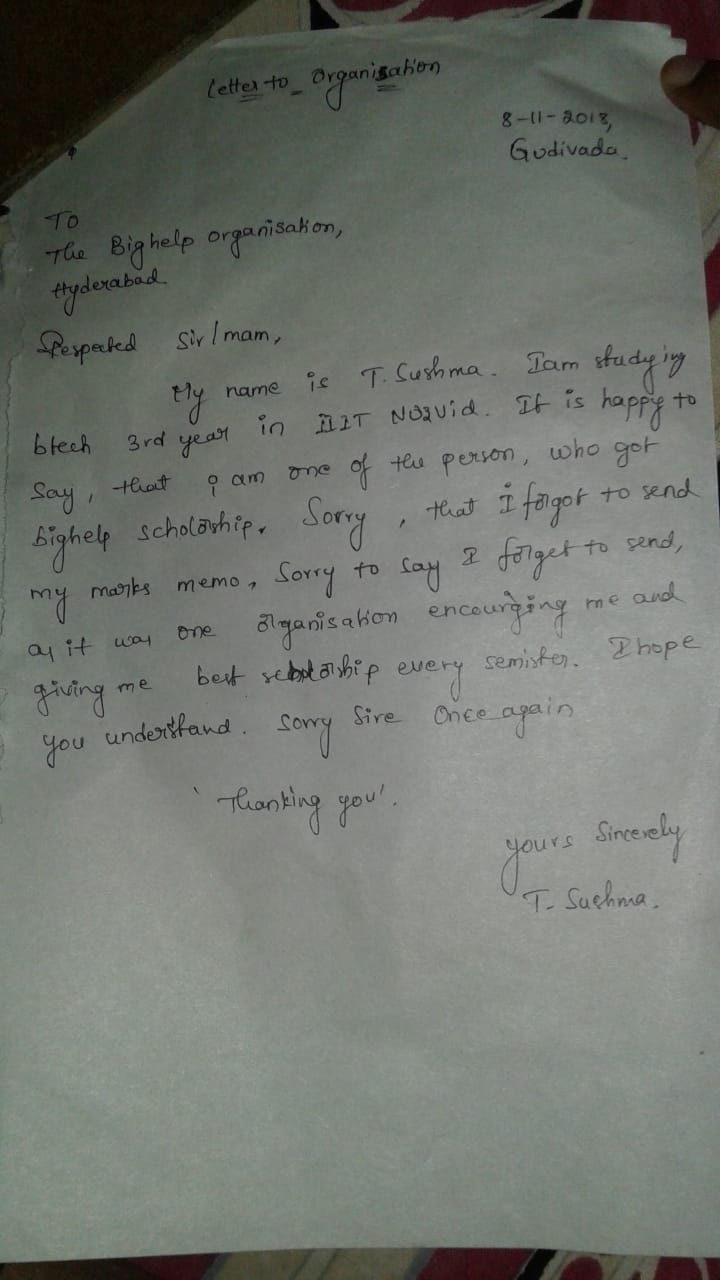 Letter to Organisation
8-11-2018,
Gudivada.
To
The Bighelp organisation,
Hyderabad
Respected Sir/mam,
My name is T. Sushma. Iam studying
btech 3rd year in IIIT NUZVid. It is happy to
say, that I am one of the person, who got
bighelp scholorship. Sorry, that I forgot to send
my marks memo, Sorry to say I forget to send,
as it was one organisation encourging me and
giving me best scholorship every semister. I hope
you understand. Sorry Sire Once again
'Thanking you'.
yours Sincerely
T. Sushma.